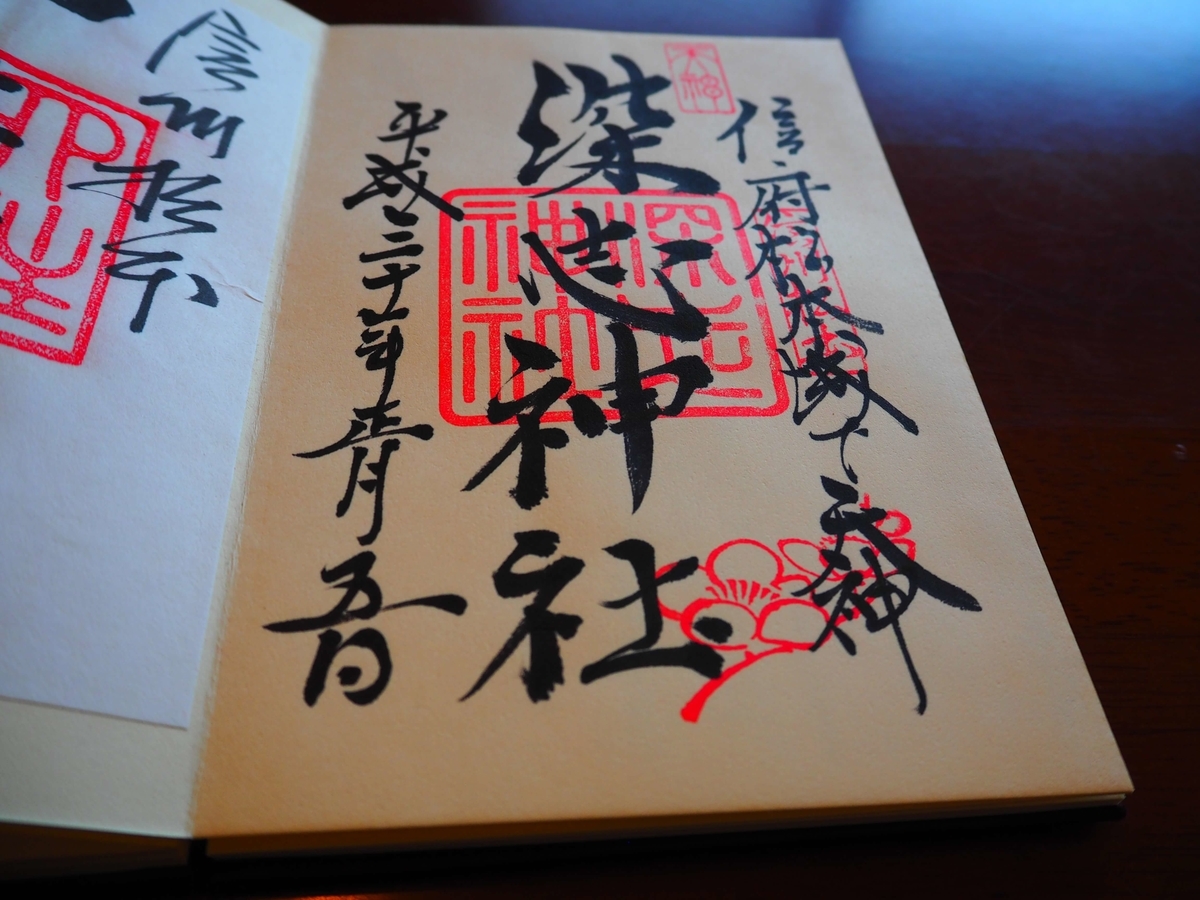 天神
信府松本城下天神
深志神社
深志神社
平成三十一年正月五日
信州松本